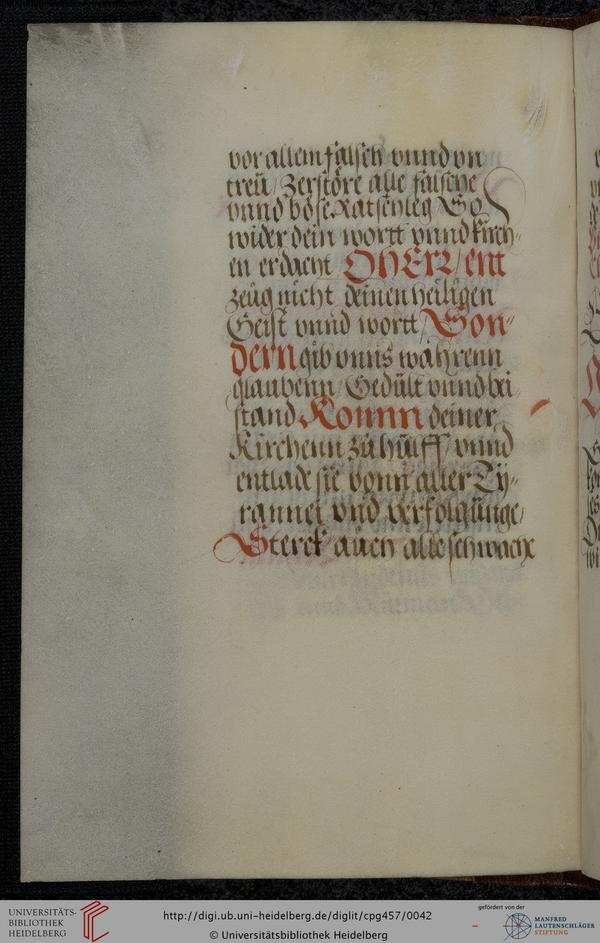 vor allem falsch vnnd vn
treü / Zerstöre alle falsche
vnnd böse Ratschleg / So
wider dein wortt vnnd kirch-
en erdacht O HErr / ent
zeüg nicht deinen heiligen
Geist vnnd wortt / Son-
dern gib vnns wahrenn
glaubenn / Gedült vnnd bei
stand Komm deiner
Kirchenn zü hülff / vnnd
entlade sie vonn aller Ty-
rannei vnd verfolgünge /
Sterck aüch alle schwache
UNIVERSITÄTS-
BIBLIOTHEK
HEIDELBERG
http://digi.ub.uni-heidelberg.de/diglit/cpg457/0042
© Universitätsbibliothek Heidelberg
gefördert von der
MANFRED
LAUTENSCHLÄGER
STIFTUNG